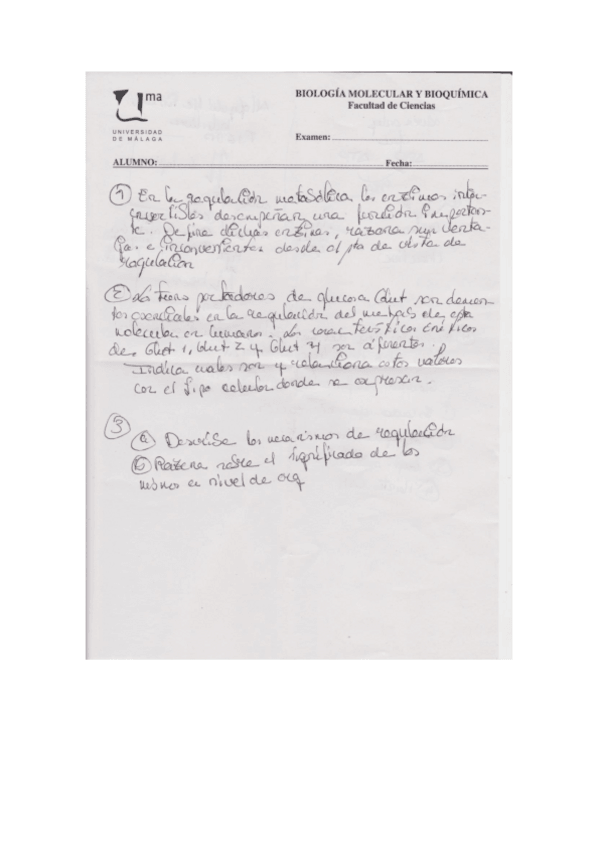 uma
UNIVERSIDAD
DE MÁLAGA
BIOLOGÍA MOLECULAR Y BIOQUÍMICA
Facultad de Ciencias
Examen:
ALUMNO: Fecha:
① En la regulación metabólica los enzimas inter-
convertibles desempeñan una función importan-
te. Define dichas enzimas, razona sus venta-
jas e inconvenientes desde el pto de vista de
regulación
② Los transportadores de glucosa Glut son elemen
tos esenciales en la regulación del metab de esta
molécula en humanos. Las características cinéticas
de Glut 1, Glut 2 y Glut 4 son diferentes.
Indica cuales son y relaciona estos valores
con el tipo celular donde se expresan.
③
ⓐ Describe los mecanismos de regulación
ⓑ Razona sobre el significado de los
mismos a nivel de org